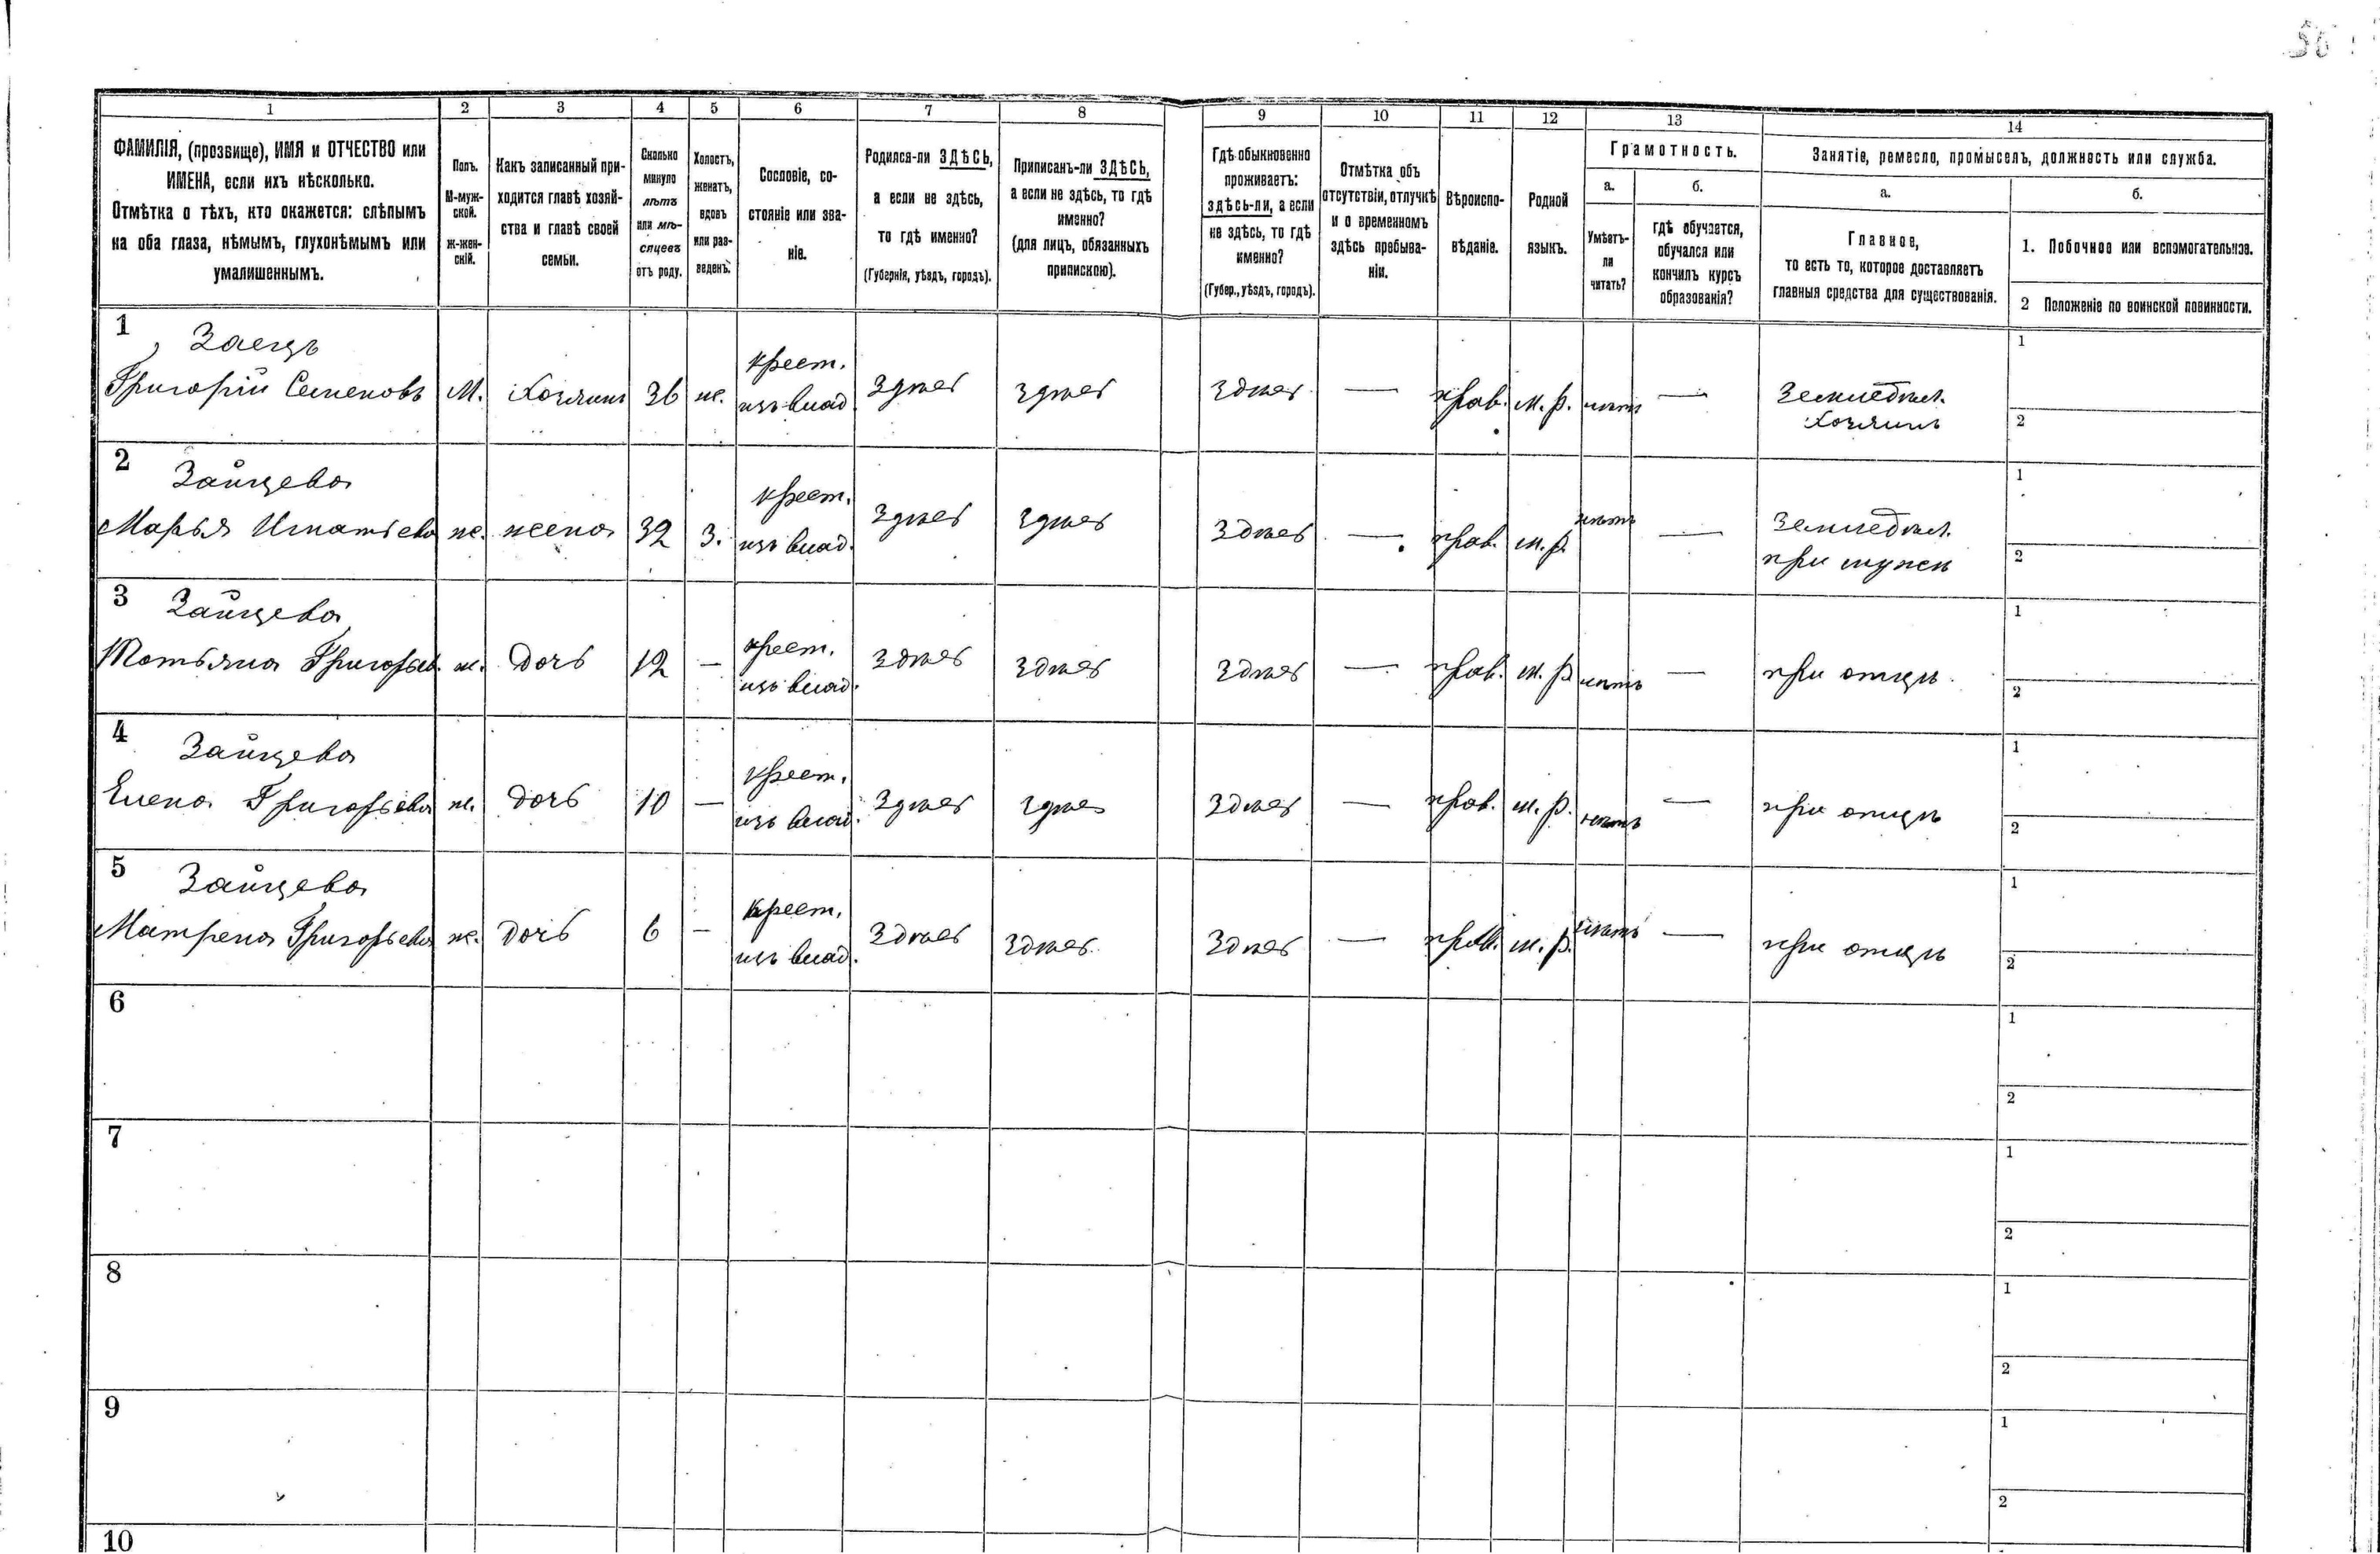 1 2 3 4 5 6 7 8 9 10 11 12 13 14
ФАМИЛІЯ, (прозвище), ИМЯ и ОТЧЕСТВО или
ИМЕНА, если ихъ нѣсколько.
Отмѣтка о тѣхъ, кто окажется: слѣпымъ
на оба глаза, нѣмымъ, глухонѣмымъ или
умалишеннымъ.
Полъ.
М-муж-
ской.
ж-жен-
скій.
Какъ записанный при-
ходится главѣ хозяй-
ства и главѣ своей
семьи.
Сколько
минуло
лѣтъ
или мѣ-
сяцевъ
отъ роду.
Холостъ,
женатъ,
вдовъ
или раз-
веденъ.
Сословіе, со-
стояніе или зва-
ніе.
Родился-ли ЗДѢСЬ,
а если не здѣсь,
то гдѣ именно?
(Губернія, уѣздъ, городъ).
Приписанъ-ли ЗДѢСЬ,
а если не здѣсь, то гдѣ
именно?
(для лицъ, обязанныхъ
припискою).
Гдѣ обыкновенно
проживаетъ:
здѣсь-ли, а если
не здѣсь, то гдѣ
именно?
(Губер., уѣздъ, городъ).
Отмѣтка объ
отсутствіи, отлучкѣ
и о временномъ
здѣсь пребыва-
ніи.
Вѣроиспо-
вѣданіе.
Родной
языкъ.
Грамотность.
а.
Умѣетъ-
ли
читать?
б.
гдѣ обучается,
обучался или
кончилъ курсъ
образованія?
Занятіе, ремесло, промыселъ, должность или служба.
а.
Главное,
то есть то, которое доставляетъ
главныя средства для существованія.
б.
1. Побочное или вспомогательное.
2 Положеніе по воинской повинности.
1 Заецъ
Григорій Семеновъ М. Хозяинъ 36 ж. крест. изъ влад. здѣсь здѣсь здѣсь — прав. м.р. нѣтъ — Земледѣл.
Хозяинъ
1
2
2 Зайцева
Марья Игнатьева ж. жена 32 з. крест. изъ влад. здѣсь здѣсь здѣсь — прав. м.р. нѣтъ — Земледѣл.
при мужѣ
1
2
3 Зайцева
Татьяна Григорьев. ж. дочь 12 — крест. изъ влад. здѣсь здѣсь здѣсь — прав. м.р. нѣтъ — при отцѣ
1
2
4 Зайцева
Елена Григорьева ж. дочь 10 — крест. изъ влад. здѣсь здѣсь здѣсь — прав. м.р. нѣтъ — при отцѣ
1
2
5 Зайцева
Матрена Григорьева ж. дочь 6 — крест. изъ влад. здѣсь здѣсь здѣсь — прав. м.р. нѣтъ — при отцѣ
1
2
6
1
2
7
1
2
8
1
2
9
1
2
10